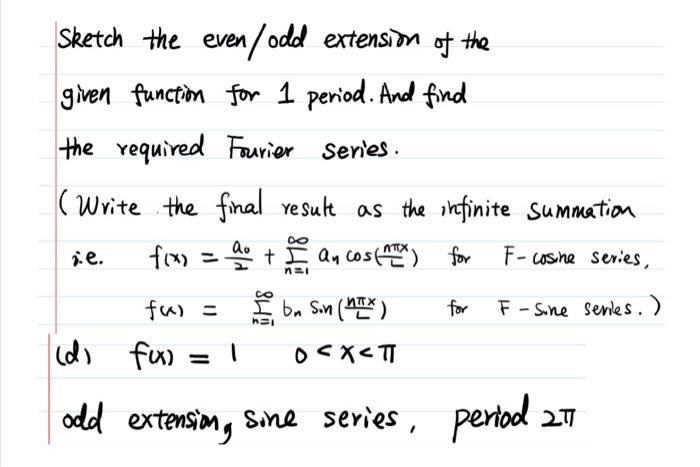 Sketch the even/odd extension of the
given function for 1 period. And find
the required Fourier series.
(Write the final result as the infinite summation
i.e. f(x) = a₀/2 + ∑_{n=1}^{∞} aₙ cos(nπx/L) for F-cosine series,
f(x) = ∑_{n=1}^{∞} bₙ sin(nπx/L) for F-sine series.)
(d) f(x) = 1 0 < x < π
odd extension, sine series, period 2π